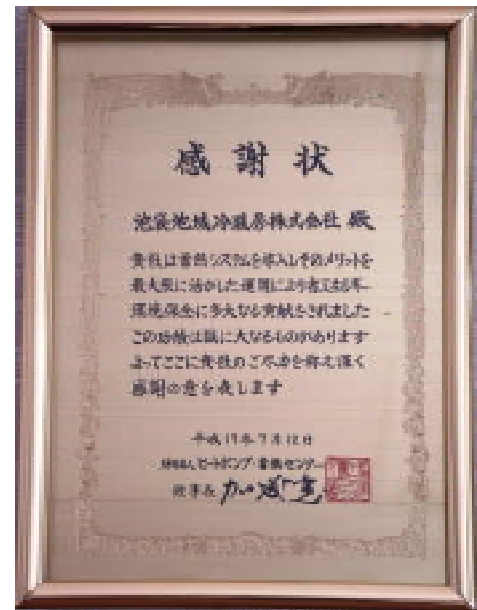 感謝状
池袋地域冷暖房株式会社 殿
貴社は蓄熱システムを導入しそのメリットを
最大限に活かした運用により省エネルギー
環境保全に多大なる貢献をされました
この功績は誠に大なるものがあります
よってここに貴社のご尽力を称え深く
感謝の意を表します
平成17年7月12日
財団法人 ヒートポンプ・蓄熱センター
理事長